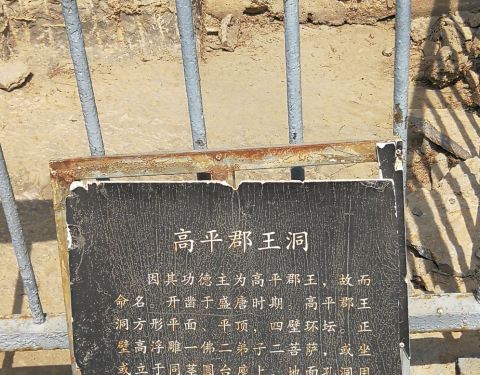 高平郡王洞
因其功德主为高平郡王，故而
命名。开凿于盛唐时期。高平郡王
洞方形平面、平顶，四壁环坛。正
壁高浮雕一佛二弟子二菩萨，或坐
或立于同茎圆台座上。地面孔洞用